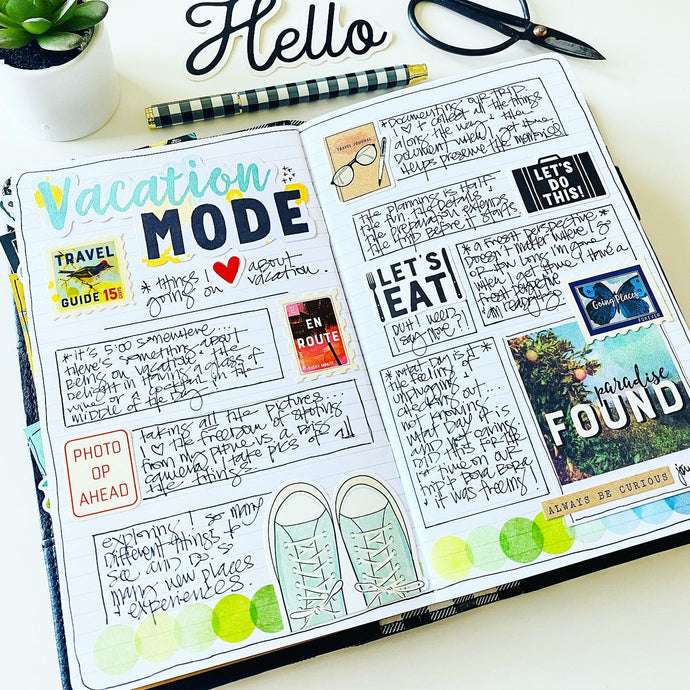 Hello
Vacation
MODE
TRAVEL
GUIDE 15
*things I ♥ about
going on vacation.
EN
ROUTE
*it's 5:00 somewhere...
there's something about
being on vacation & the
delight in having a glass of
wine or a cocktail in the
middle of the day
PHOTO
OP
AHEAD
taking all the pictures
♥ the freedom of shooting
from my phone vs. a big
camera. I take pics of all
the things.
exploring! so many
different things to
see and do &
many new places
+ experiences.
*Documenting our trip.
I ♥ to collect all the things
along the way & then
document when I get home
helps preserve the memories
TRAVEL JOURNAL
LET'S
DO
THIS!
the planning is half
the fun. the details &
the preparation extends
the trip before it starts.
LET'S
EAT
but I need
say more?!
*a fresh perspective. *
doesn't matter where I go
or how long I'm gone
when I get home I have a
fresh perspective
Going Places
FOREVER
*what day is it *
the feeling of
unplugging
checking out..
not knowing
what day it is
and not caring
time on our
trip to Bora Bora
it was freeing!
paradise
FOUND
ALWAYS BE CURIOUS